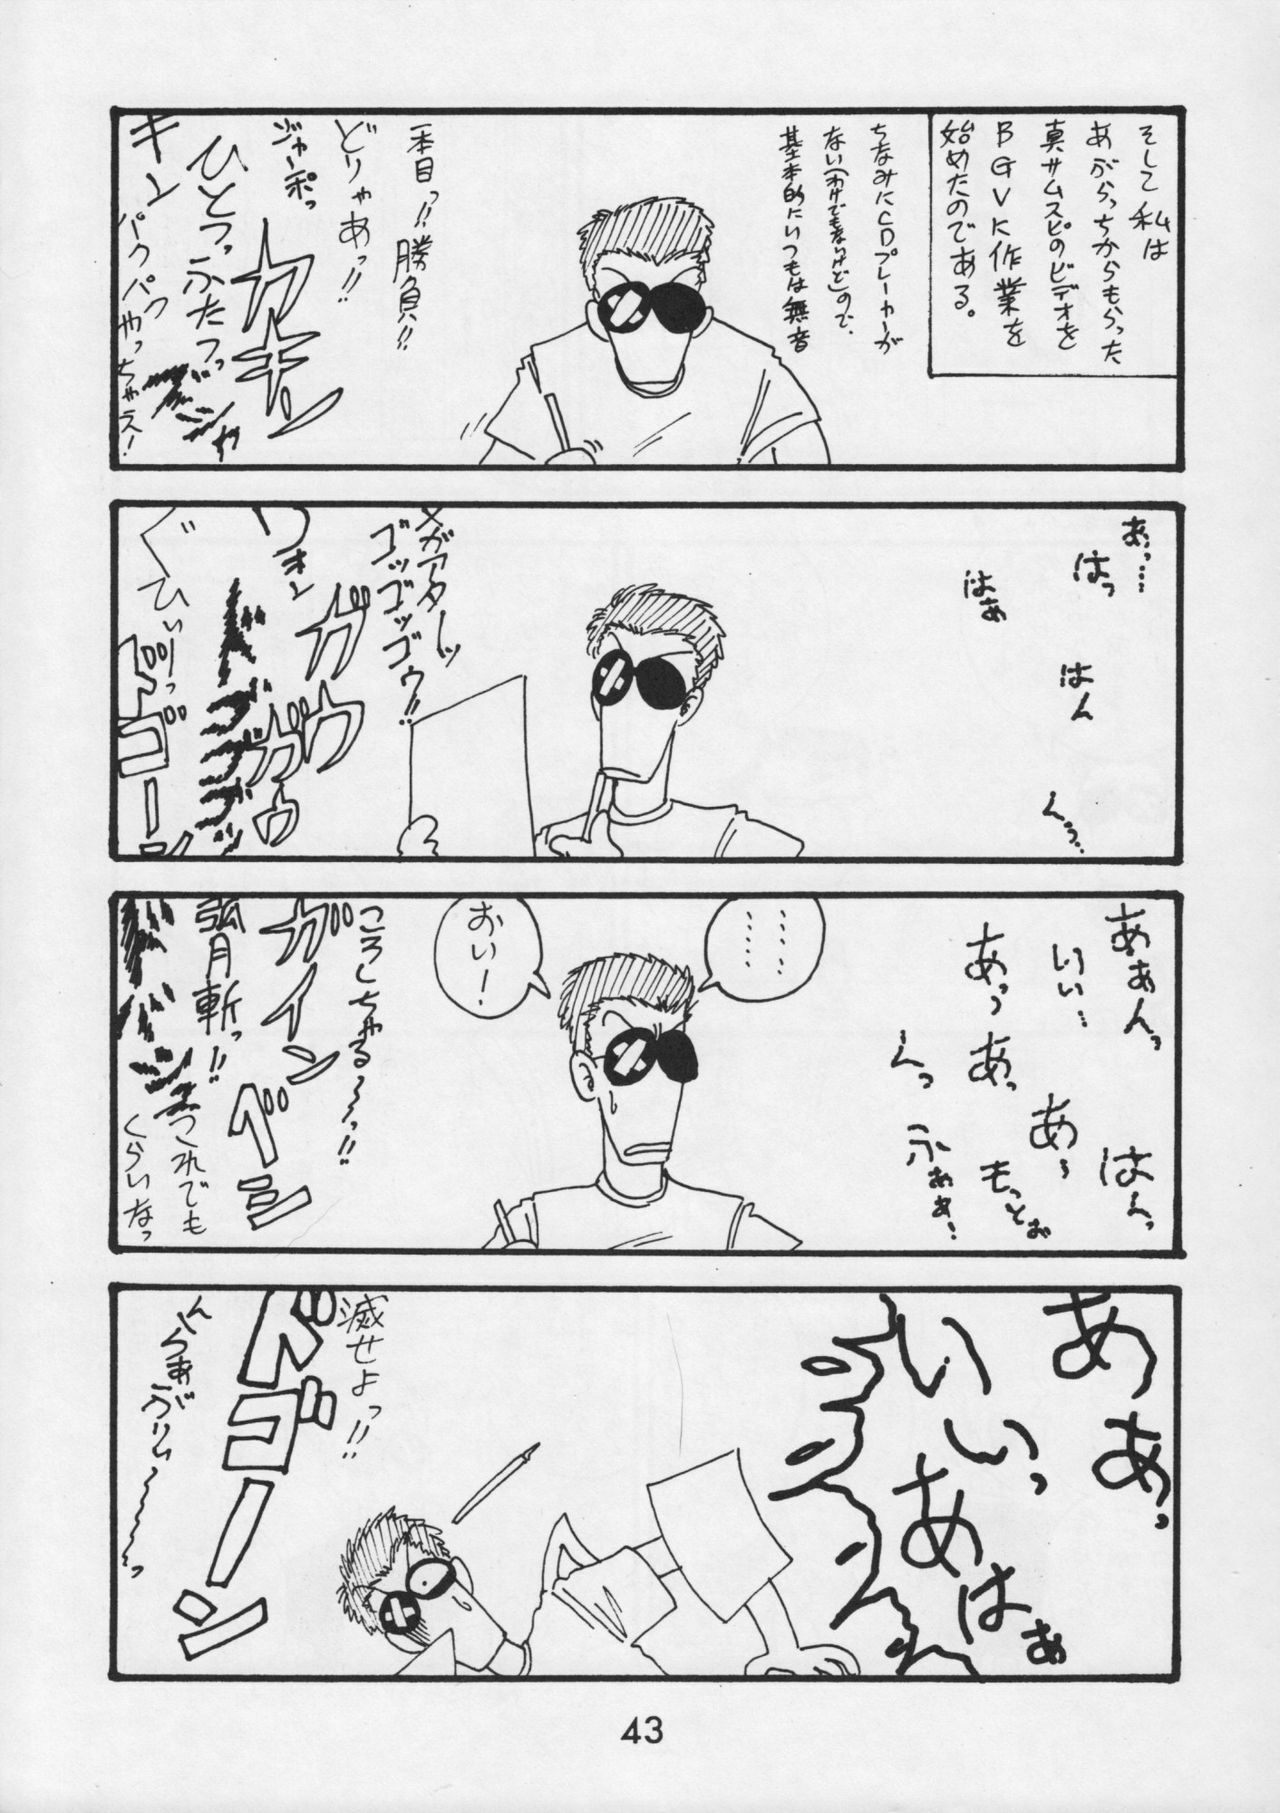 そして私は
あがらっちからもらった
真サムスピのビデオを
BGVに作業を
始めたのである。
ちなみにCDプレーカーが
ない(わけでもないけど)ので、
基本的にいつもは無音
一本目っ!!勝負!!
どりゃあっ!!
ジャーポっ
カキン
ひとつっふたつっ
ズシャ
キン
パクパクっやっちゃえ!
あっ…
はっ
はぁ
はん
んっ…
メガアターッ
ゴッゴゴッゴゥ!!
ガガウ
ガガウ
ウォン
ひぃりっ
ぐ
ドゴーン
あぁんっ
はんっ
いい…
あ〜
あっあっ
もっとぉ
んっ
ふぁぁ!
………
おい!
ころしちゃる〜っ!!
ガインベシ
弧月斬っ!!
これでも
くらいなっ
ああっ
いいっ
あはぁ
滅せよっ!!
ドゴーン
43